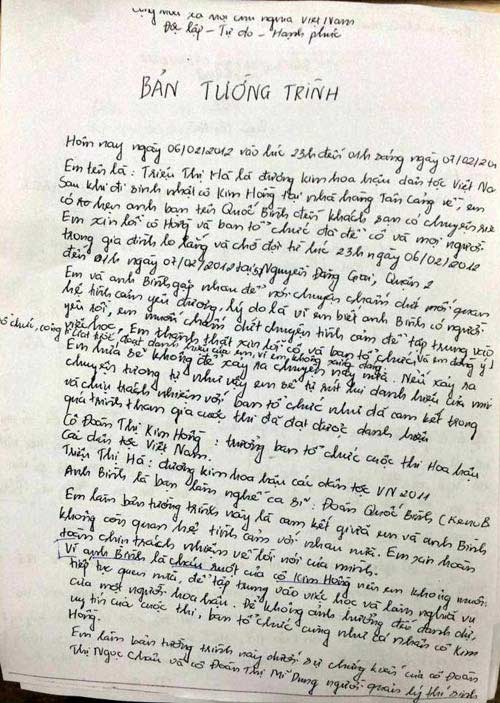 Cộng hòa xã hội chủ nghĩa Việt Nam
Độc lập - Tự do - Hạnh phúc
BẢN TƯỜNG TRÌNH
Hôm nay ngày 06/02/2012 vào lúc 23h đến 01h sáng ngày 07/02/201
Em tên là: Triệu Thị Hà là đương kim hoa hậu dân tộc Việt Na
Sau khi đi sinh nhật cô Kim Hồng tại nhà hàng Tân Cảng về, em
có hẹn anh bạn tên Quốc Bình đến khách sạn có chuyện riê
Em xin lỗi cô Hồng và ban tổ chức đã để cô và mọi người
trong gia đình lo lắng và chờ đợi từ lúc 23h ngày 06/02/2012
đến 01h ngày 07/02/2012 tại Nguyễn Đăng Giai, Quận 2
Em và anh Bình gặp nhau để nói chuyện chấm dứt mối quan
hệ tình cảm yêu đương, lý do là vì em biết anh Bình có người
yêu rồi, em muốn chấm dứt chuyện tình cảm để tập trung vào
việc học, Em thành thật xin lỗi cô và ban tổ chức, và em đồng ý
tổ chức, công danh hiệu của em, vì em không xứng đáng.
Em hứa sẽ không để xảy ra chuyện này nữa. Nếu xảy ra
chuyện tương tự như vậy em sẽ tự rút lui danh hiệu của mình
và chịu trách nhiệm với ban tổ chức như đã cam kết trong
quá trình tham gia cuộc thi đã đạt được danh hiệu
Cô Đoàn Thị Kim Hồng: trưởng ban tổ chức cuộc thi Hoa hậu
Các dân tộc Việt Nam.
Triệu Thị Hà: đương kim hoa hậu các dân tộc VN 2011
Anh Bình là bạn làm nghề ca sĩ: Đoàn Quốc Bình
Em làm bản tường trình này là cam kết giữa em và anh Bình
không còn quan hệ tình cảm với nhau nữa. Em xin hoàn
toàn chịu trách nhiệm về lời nói của mình.
Vì anh Bình là cháu ruột của cô Kim Hồng nên em không muốn
tiếp tục quen nữa, để tập trung vào việc học và làm nghĩa vụ
của một người hoa hậu. Để không ảnh hưởng đến danh dự,
uy tín của cuộc thi, ban tổ chức cũng như cá nhân cô Kim
Hồng.
Em làm bản tường trình này dưới sự chứng kiến của cô Đoàn
Thị Ngọc Châu và cô Đoàn Thị Mỹ Dung người quản lý thí sinh